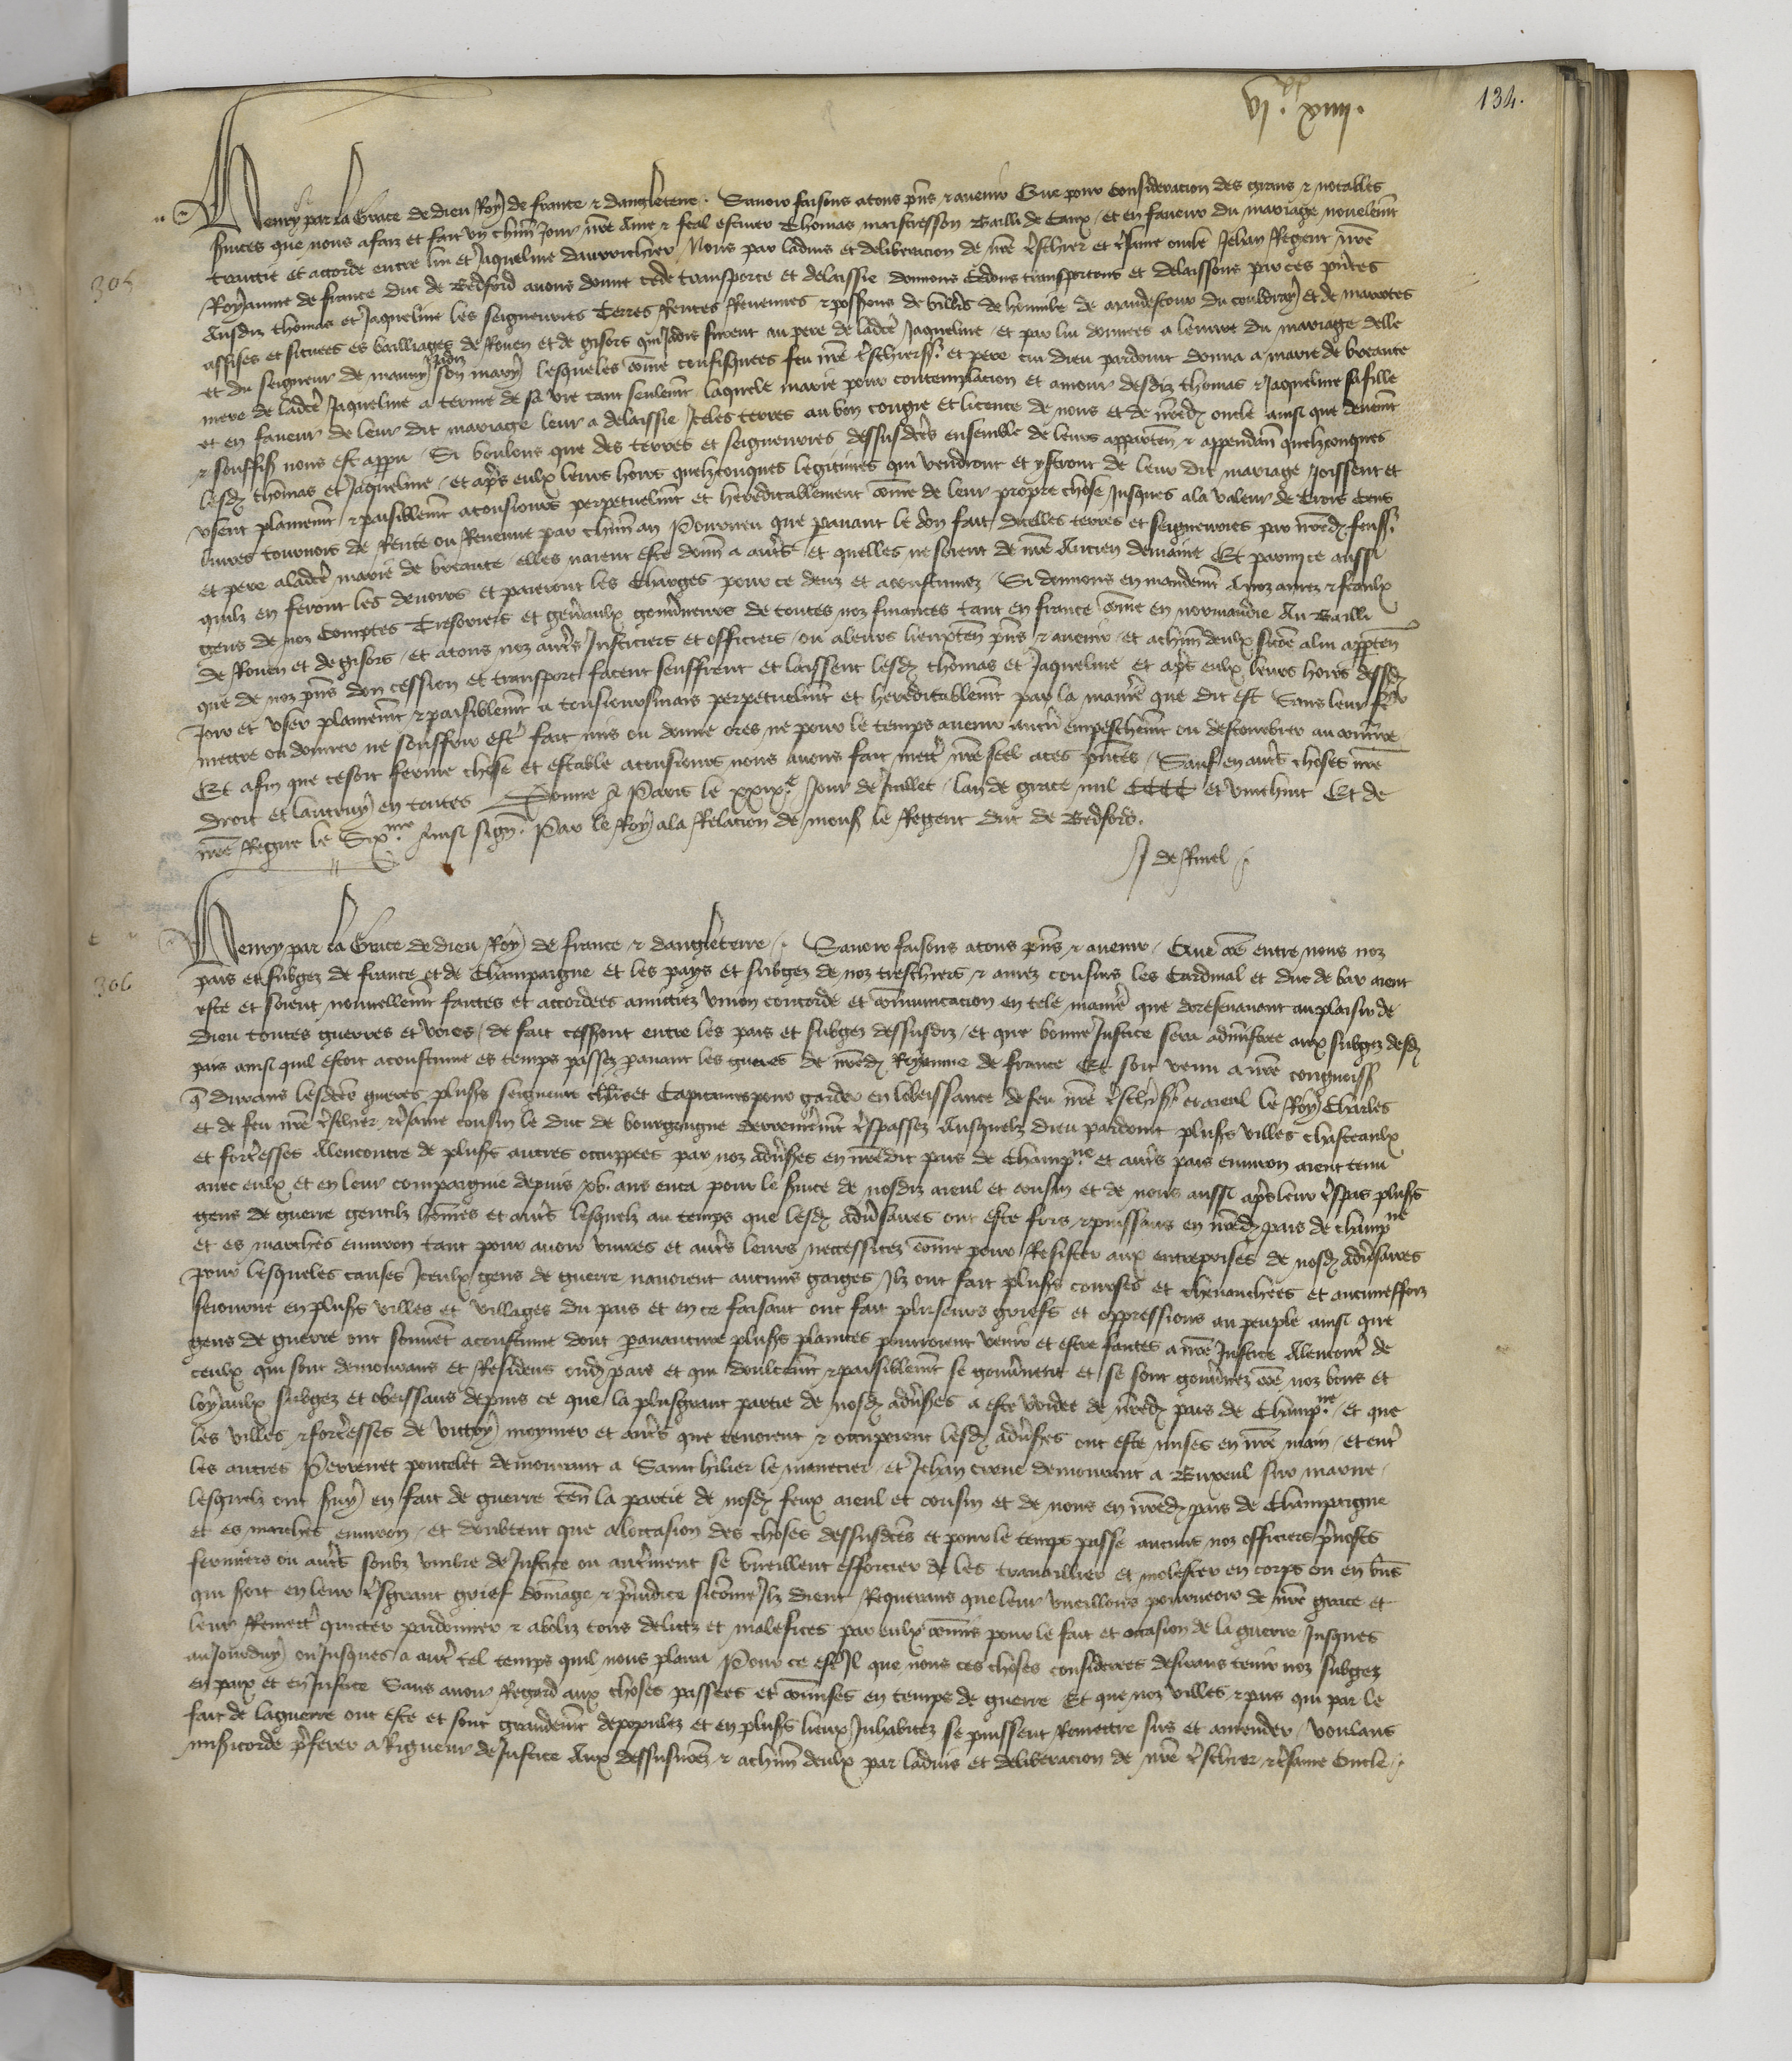 vj.xx xiiij.
134.
Henry par la grace de dieu Roy de france & dangleterre. Sauoir faisons atous pñs & auenir Que pour consideracion des grans & notables
305
seruices que nous a faiz et fait vn chũn jour nr̃e Ame & feal escuier Thomas maistresson Bailli de Caux / et en faueur du mariage nouuelem̃t
traictie et accorde entre lui et Jaqueline Nous par laduis et deliberacion de nr̃e tr̃schier et tr̃same oncle Jehan Regent nr̃e
Royaume de france duc de Bedford auons donne cede transporte et delaissie donnons cedons transportons et delaissons par ces pñtes
Ausdiz thomas et Jaqueline les seigneuries Terres Rentes Reuenues & possessions de de de du couldray et de
assises et situees es bailliages de Rouen et de gisors qui Jadis furent au pere de ladc̃e Jaqueline / et par lui donnees a leuure du mariage delle
et du seigneur de mauny Jadiz son mary lesqueles com̃e confisquees feu nr̃e tr̃schierss.r et pere cui dieu pardoint donna a marie de breaute
mere de ladc̃e Jaqueline a terme de sa vie tant seulem̃t laquele marie pour contemplacion et amour desdiz thomas & Jaqueline sa fille
et en faueur de leur dit mariage leur a delaissie Jceles terres au bon congie et licence de nous et de nr̃ed oncle ainsi que deuem̃t
& souffis nous est apparu / Si voulons que des terres et seigneuries dessusdc̃es ensemble de leurs apparten̄ & appendan̄ quelzconques
lesd thomas et Jaqueline / et apr̃s eulx leurs hoirs quelzconques legitimes qui vendront et ysteront de leur dit mariage Joissent et
vsent plainem̃t & paisiblem̃t atousiours perpetuelm̃t et hereditablement com̃e de leur propre chose Jusques ala valeur de trois cens
liures tournois de Rente ou Reuenue par chũn an Pourueu que pauant le don fait dicelles terres et seigneuries par nr̃ed feuss.r
et pere aladc̃e marie de breaute / elles naient este donn̄ a autr̃s / et quelles ne soient de nr̃e Ancien demaine Et parmi ce aussi
quilz en feront les deuoirs et paieront les Charges pour ce deuz et acoustumez / Si donnons en mandem̃t A noz amez & feaulx
gens de noz Comptes Tresoriers et gen̄aulx gouũneurs de toutes noz finances tant en france com̃e en normandie Au Bailli
de Rouen et de gisors / et atous noz autr̃s Justiciers et officiers / ou aleurs lieuxten̄ pñs & auenir / et achũn deulx sicõe alui apparten̄
que de noz pñs don cession et transport facent seuffrent et laissent lesd thomas et Jaqueline et apr̃s eulx leurs hoirs dessusd
Joir et vser plainem̃t & paisiblem̃t a tousioursmais perpetuelm̃t et hereditablem̃t par la manr̃e que dit est Sans leur fẽ
mettre ou donner ne souffrir estr̃ fait mis ou donne ores ne pour le temps auenir aucũ empeschem̃t ou destourbier au contr̃re
Et afin que cesoit ferme chose et estable atousiours nous auons fait mettr̃ nr̃e seel aces pñtes / Sauf en autr̃s choses nr̃e
droit et lautruy en toutes Donne A Paris le xxix.e Jour de Juillet / lan de grace mil CCCC et vincthuit Et de
nr̃e Regne le Six.me Ainsi sign̄. Par le Roy ala Relacion de mons̃ le Regent duc de Bedford.
J de Rinel
Henry par la Grace de dieu Roy de france & dangleterre / Sauoir faisons atous pñs & auenir / Que cõe entre nous noz
306
pais et subgez de france et de Champaigne et les pays et subgez de noz treschiers & amez cousins les Cardinal et duc de bar aient
este et soient nouuellem̃t faictes et accordees amitiez vnion concorde et com̃unicacion en tele manr̃e que doresenauant au plaisir de
dieu toutes guerres et voies de fait cesseront entre les pais et subgez dessusdiz / et que bonne Justice sera admĩstree aux subgez desd
pais ainsi quil estoit acoustume es temps passez pauant les guerres de nr̃ed Royaume de france Et soit venu a nr̃e congnoiss
q̃ durans lesdc̃es guerres plus̃s seigneurs et Capitaines pour garder en lobeissance de feu nr̃e tr̃schr̃ss.r et aieul le Roy Charles
et de feu nr̃e tr̃schier & tr̃same cousin le duc de bourgongne derrenierem̃t tr̃spassez Ausquelz dieu pardoint plus̃s villes chasteaulx
et fortr̃esses Alencontre de plus̃s autres occuppees par noz adũses en nr̃edit pais de Champ.ne et autr̃s pais enuiron aient tenu
auec eulx et en leur compaignie depuis xv. ans enca pour le suice de nosdiz aieul et cousin et de nous aussi apr̃s leur tr̃spas plus̃s
gens de guerre gentilz hom̃es et autr̃s lesquelz au temps que lesd adũsaires ont este fors & puissans en nr̃ed pais de Champ.ne
et es marches enuiron tant pour auoir viures et autr̃s leurs necessitez com̃e pour Resister aux entreprises de nosd adũsaires
pour lesqueles causes Jceulx gens de guerre nauoient aucuns gaiges Jlz ont fait plus̃s courses et cheuauchees et aucuneffoiz
seiourne en plus̃s villes et villages du pais et en ce faisant ont fait pluseurs griefs et oppressions au peuple ainsi que
gens de guerre ont souuẽt acoustume dont parauanture plus̃s plaintes pourroient venir et estre faictes a nr̃e Justice Alencontr̃ de
ceulx qui sont demourans et Residens oud pais et qui doulcem̃t & paisiblem̃t se gouũnent et se sont gouũnez cõe noz bons et
loyaulx subgez et obeissans depuis ce que la plusgrant partie de nosd adũses a este vuidee de nr̃ed pais de Champ.ne / et que
les villes & fortr̃esses de vitry moymer et autr̃s que tenoient & occupoient lesd adũses ont este mises en nr̃e main / et entr̃
les autres Perrenet poncelet demourant a Saint hilier le / et Jehan demourant a sur marne /
lesquelz ont suy en fait de guerre ten̄ la partie de nosd feux aieul et cousin et de nous en nr̃ed pais de Champaigne
et es marches enuiron / et doubtent que aloccasion des choses dessusdc̃es et pour le temps passe aucuns noz officiers p̃uosts
fermiers ou autr̃s soubz vmbre de Justice ou autr̃ment se vueillent efforcier de les trauaillier et molester en corps ou en biẽs
qui soit en leur tr̃sgrant grief dom̃age & p̃iudice sicom̃e Jlz dient Requerans que leur vueillons pourueoir de nr̃e grace et
leur Remettr̃ quicter pardonner & aboliz tous delictz et malefices par eulx com̃is pour le fait et occasion de la guerre Jusques
auJourduy ou Jusques a autr̃ tel temps quil nous plaira Pour ce est Jl que nous ces choses considerees desirans tenir noz subgez
en paix et en Justice Sans auoir Regard aux choses passees et com̃ises en temps de guerre Et que noz villes & pais qui par le
fait de laguerre ont este et sont grandem̃t depopulez et en plus̃s lieux Jnhabitez se puissent Remettre sus et amender / voulans
misẽicorde p̃ferer a Rigueur de Justice Aux dessusnõez & achũn deulx par laduis et deliberacion de nr̃e tr̃schier & tr̃same Oncle